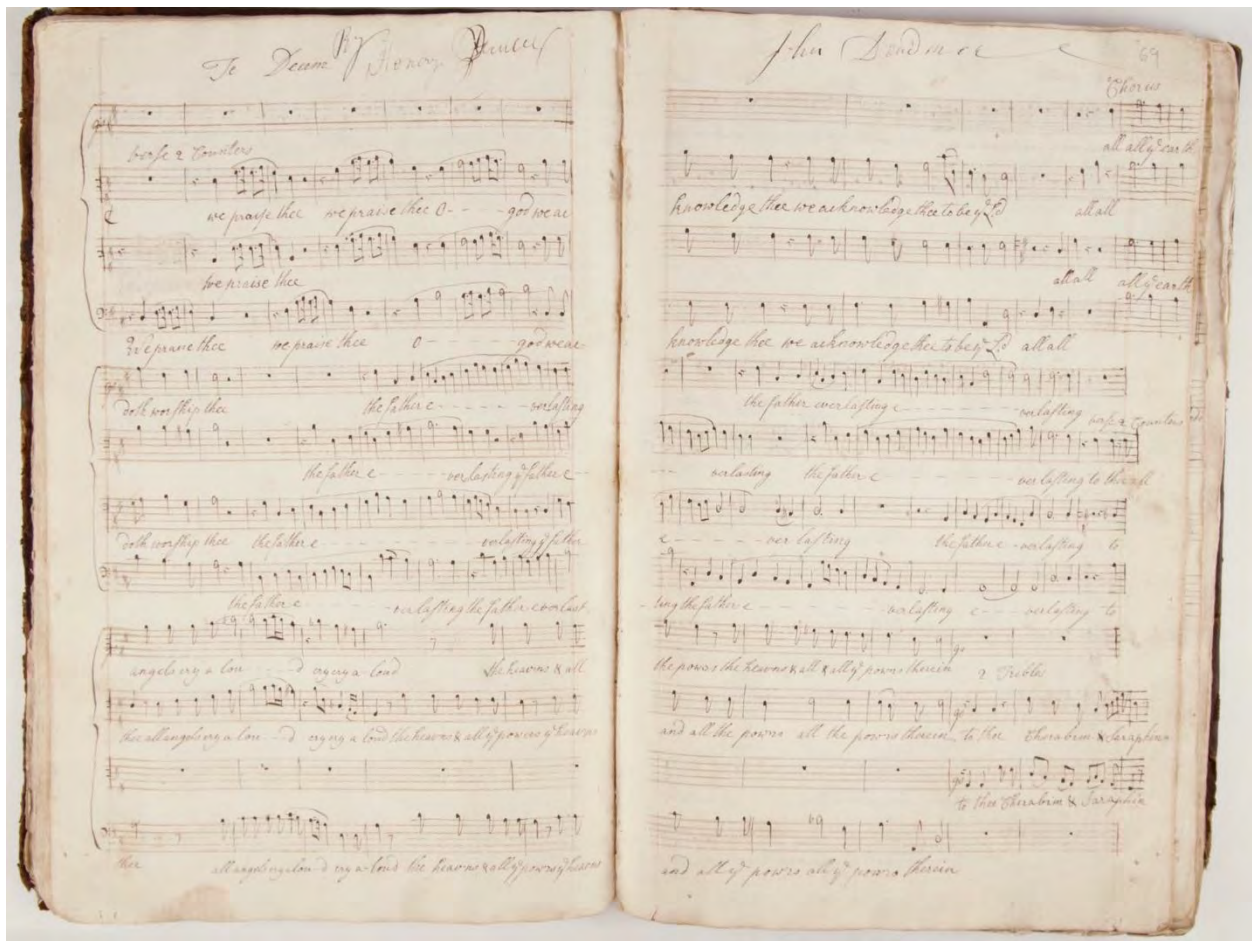 Te Deum By Henry Purcell
verse 2 Counters
we praise thee we praise thee O - - - god we ac
we praise thee
We praise thee we praise thee O - - - - - - god we ac
doth worship thee the father e - - - - - - verlasting
the father e - - - - - verlasting yᵉ father e - -
doth worship thee the father e - - - - - - - - verlasting yᵉ father
the father e - - - - - - - - verlasting the father everlast
angels cry a lou - - - - d cry cry a loud the heavns & all
thee all angels cry a lou - - - d cry cry a loud the heavns & all yᵉ powers yᵉ heavns
thee all angels cry a lou - d cry a loud the heavns & all yᵉ powrs yᵉ heavns
John
69
Chorus
all all yᵉ earth
knowledge thee we acknowledge thee to be yᵉ Lᵈ all all
all all all yᵉ earth
knowledge thee we acknowledge thee to be yᵉ Lᵈ all all
the father everlasting e - - - - - - - verlasting
verse 2 Counters
- - - verlasting the father e - - - - - - - - verlasting to thee all
e - - - - - ver lasting the father e - verlasting to
- ting the father e - - - - - - - - verlasting e - - - verlasting to
the powrs the heavns & all & all yᵉ powrs therein
2 Trebles
and all the powrs all the powrs therein to thee Cherubim & Saraphin
to thee Cherubim & Saraphin
and all yᵉ powrs all yᵉ powrs therein